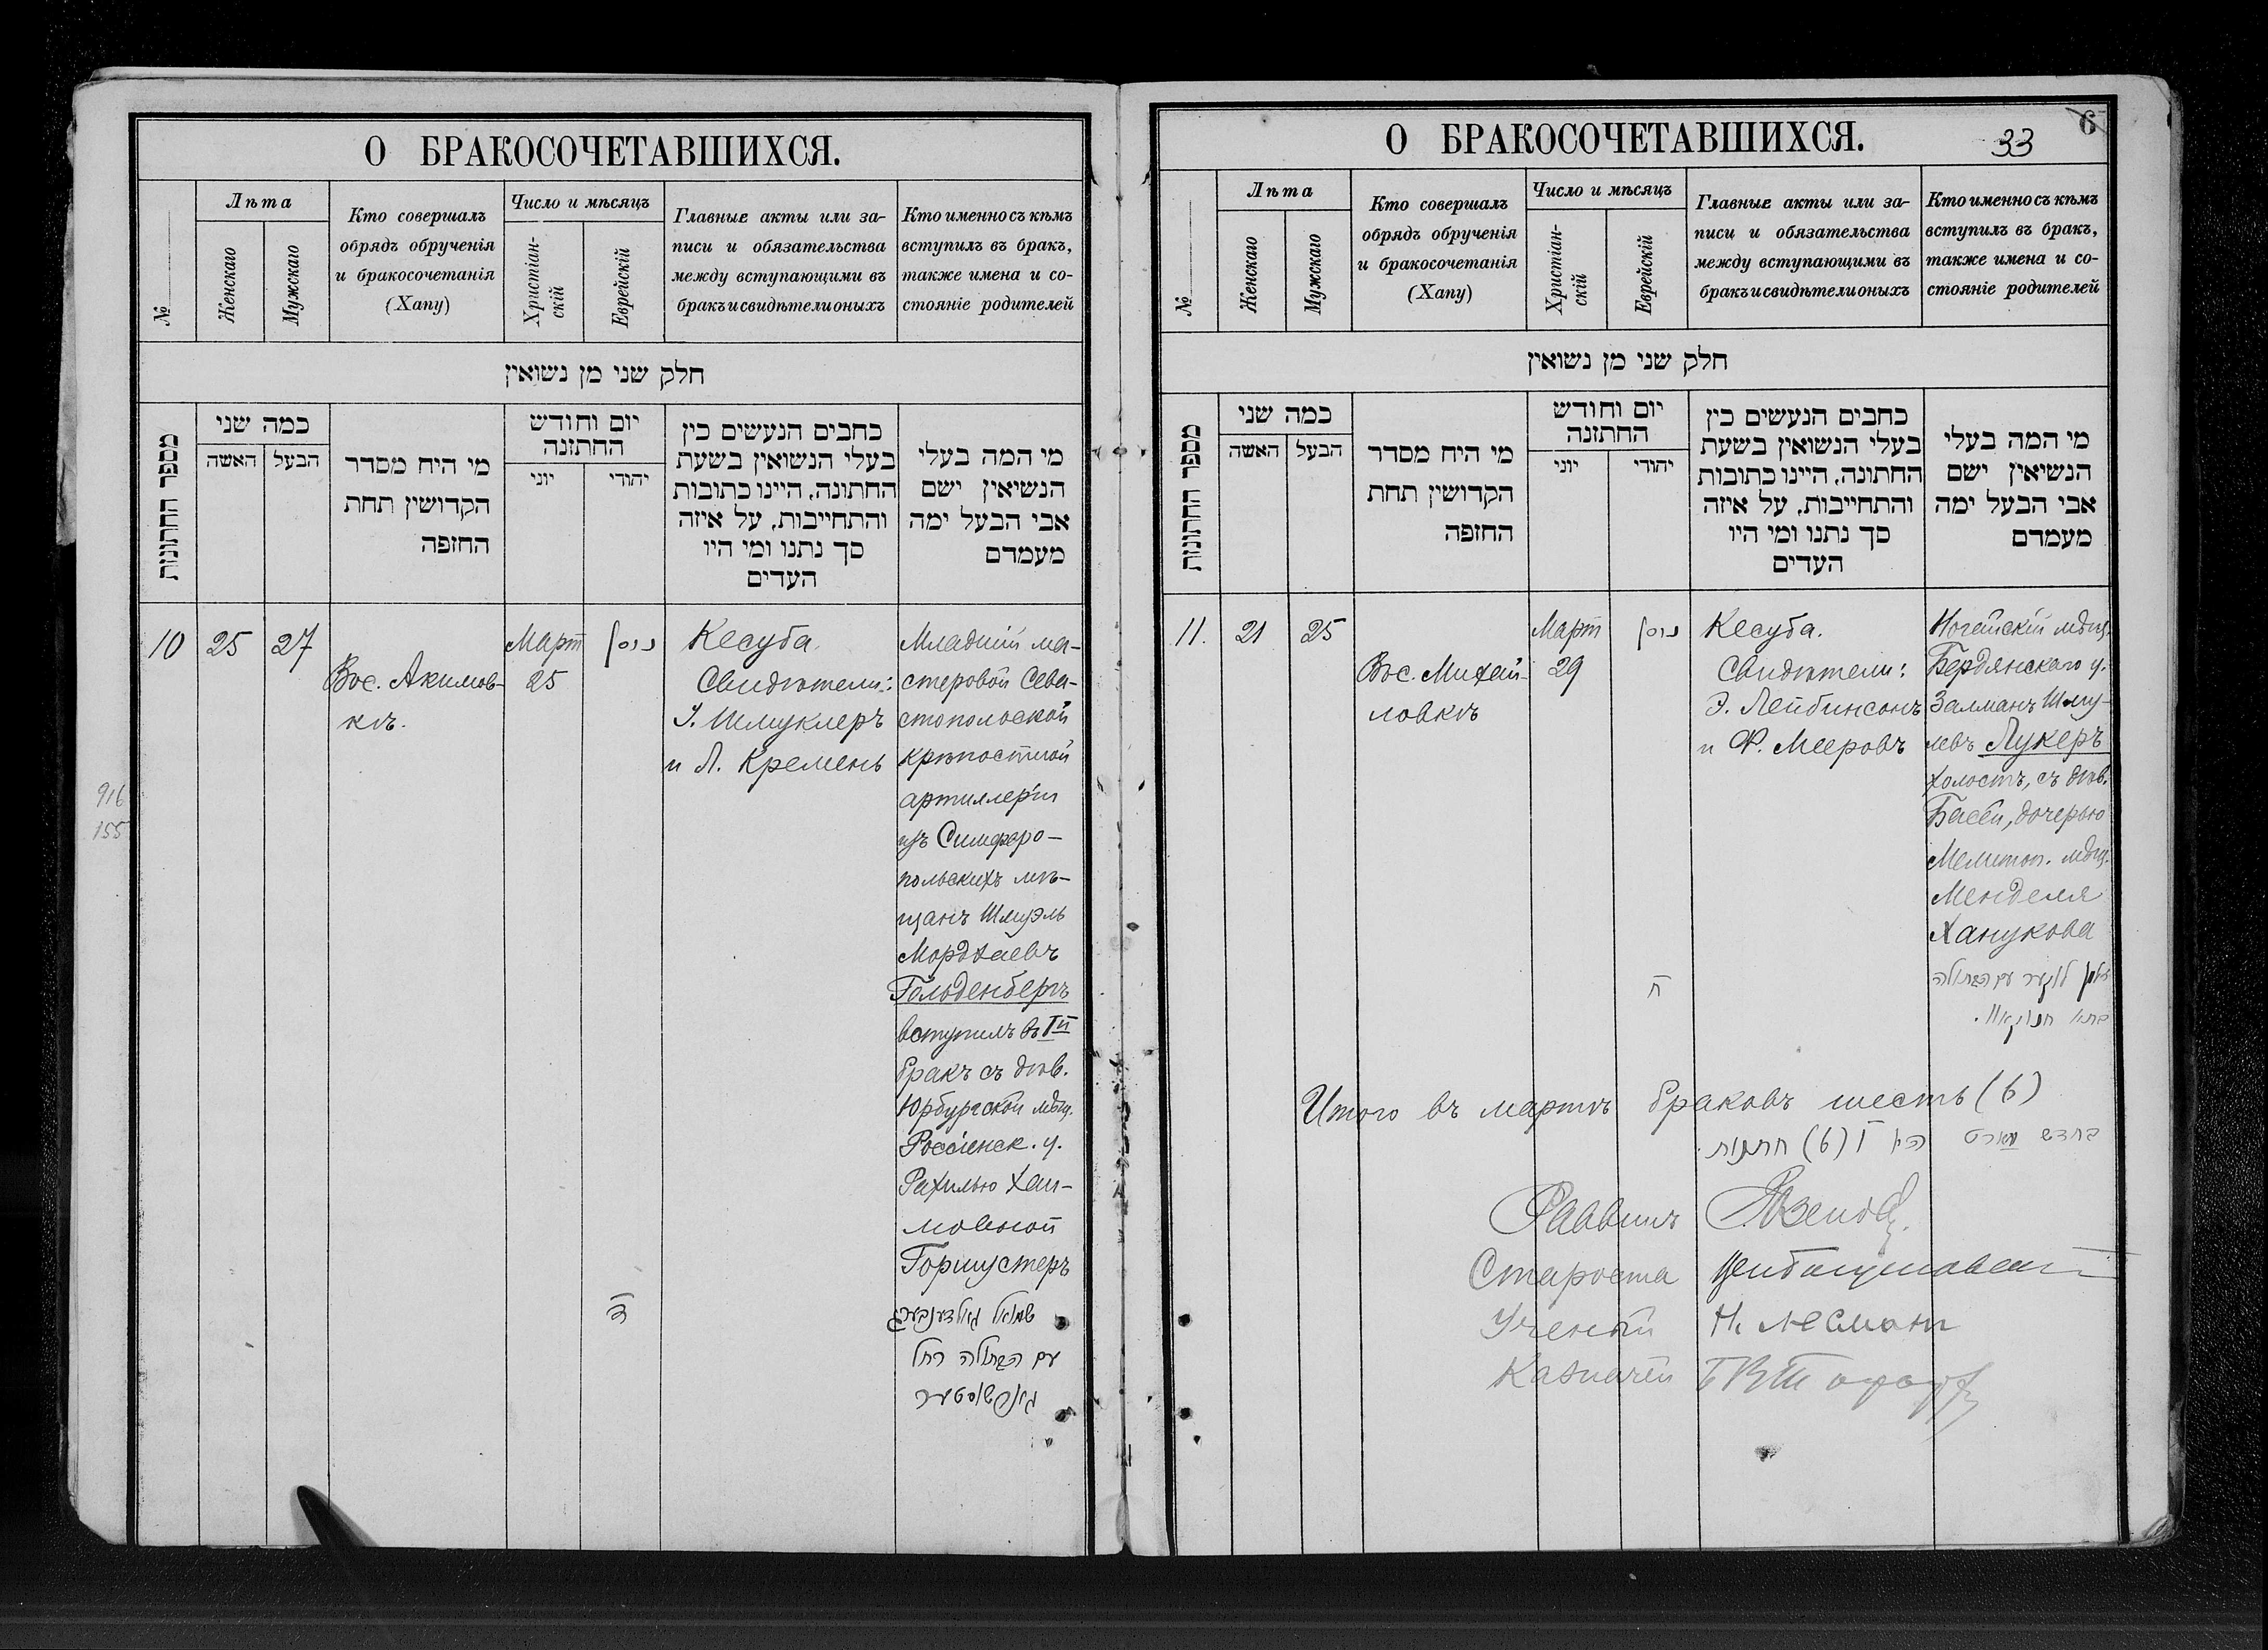 О БРАКОСОЧЕТАВШИХСЯ.
№
Лѣта
Женскаго
Мужскаго
Кто совершалъ
обрядъ обрученія
и бракосочетанія
(Хапу)
Число и мѣсяцъ
Христіан-
скій
Еврейскій
Главные акты или за-
писи и обязательства
между вступающими въ
бракъ и свидѣтели оныхъ
Кто именно съ кѣмъ
вступилъ въ бракъ,
также имена и со-
стояніе родителей
חלק שני מן נשואין
מספר החתונות
כמה שני
האשה
הבעל
מי היח מסדר
הקדושין תחת
החזפה
יום וחודש
החתזנה
יוני
יהודי
כחבים הנעשים כין
בעלי הנשואין בשעת
החתונה, היינו כתובות
והתחייבות, על איזה
סך נתנו ומי היו
העדים
מי המה בעלי
הנשיאין ישם
אבי הבעל ימה
מעמדם
10
25
27
Вос. Акимов-
кѣ.
Март
25
ניסן
Кесуба.
Свидѣтели:
У. Шмуклеръ
и Л. Кремень
Младшій ма-
стеровой Сева-
стопольской
крѣпостной
артиллеріи
изъ Симферо-
польскихъ мѣ-
щанъ Шмуэль
Мордхаевъ
Гольденбергъ
вступилъ въ Iй
бракъ съ дѣв.
Юрбургской мѣщ.
Россіенск. у.
Рахилью Хаи-
мовной
Горшустеръ
שמואל גאלדענבערג
עם הבתולה רחל
ד
916
155
О БРАКОСОЧЕТАВШИХСЯ.
33
6
№
Лѣта
Женскаго
Мужскаго
Кто совершалъ
обрядъ обрученія
и бракосочетанія
(Хапу)
Число и мѣсяцъ
Христіан-
скій
Еврейскій
Главные акты или за-
писи и обязательства
между вступающими въ
бракъ и свидѣтели оныхъ
Кто именно съ кѣмъ
вступилъ въ бракъ,
также имена и со-
стояніе родителей
חלק שני מן נשואין
מספר החתונות
כמה שני
האשה
הבעל
מי היח מסדר
הקדושין תחת
החזפה
יום וחודש
החתזנה
יוני
יהודי
כחבים הנעשים כין
בעלי הנשואין בשעת
החתונה, היינו כתובות
והתחייבות, על איזה
סך נתנו ומי היו
העדים
מי המה בעלי
הנשיאין ישם
אבי הבעל ימה
מעמדם
11.
21
25
Вос. Михай-
ловкѣ
Март
29
ניסן
ח
Кесуба.
Свидѣтели:
Э. Лейбинсонъ
и Ф. Мееровъ
Ногайскій мѣщ.
Бердянскаго у.
Залманъ Шму-
левъ Лукеръ
холостъ, съ дѣв.
Басей, дочерью
Мелитоп. мѣщ.
Менделя
Ханукова
זלמן לוקער עם הבתולה
Итого въ мартѣ браковъ шесть (6)
בחדש מארט היו ו (6) חתונות
Раввинъ
Староста
Ученый Н. Лесманъ
Казначей